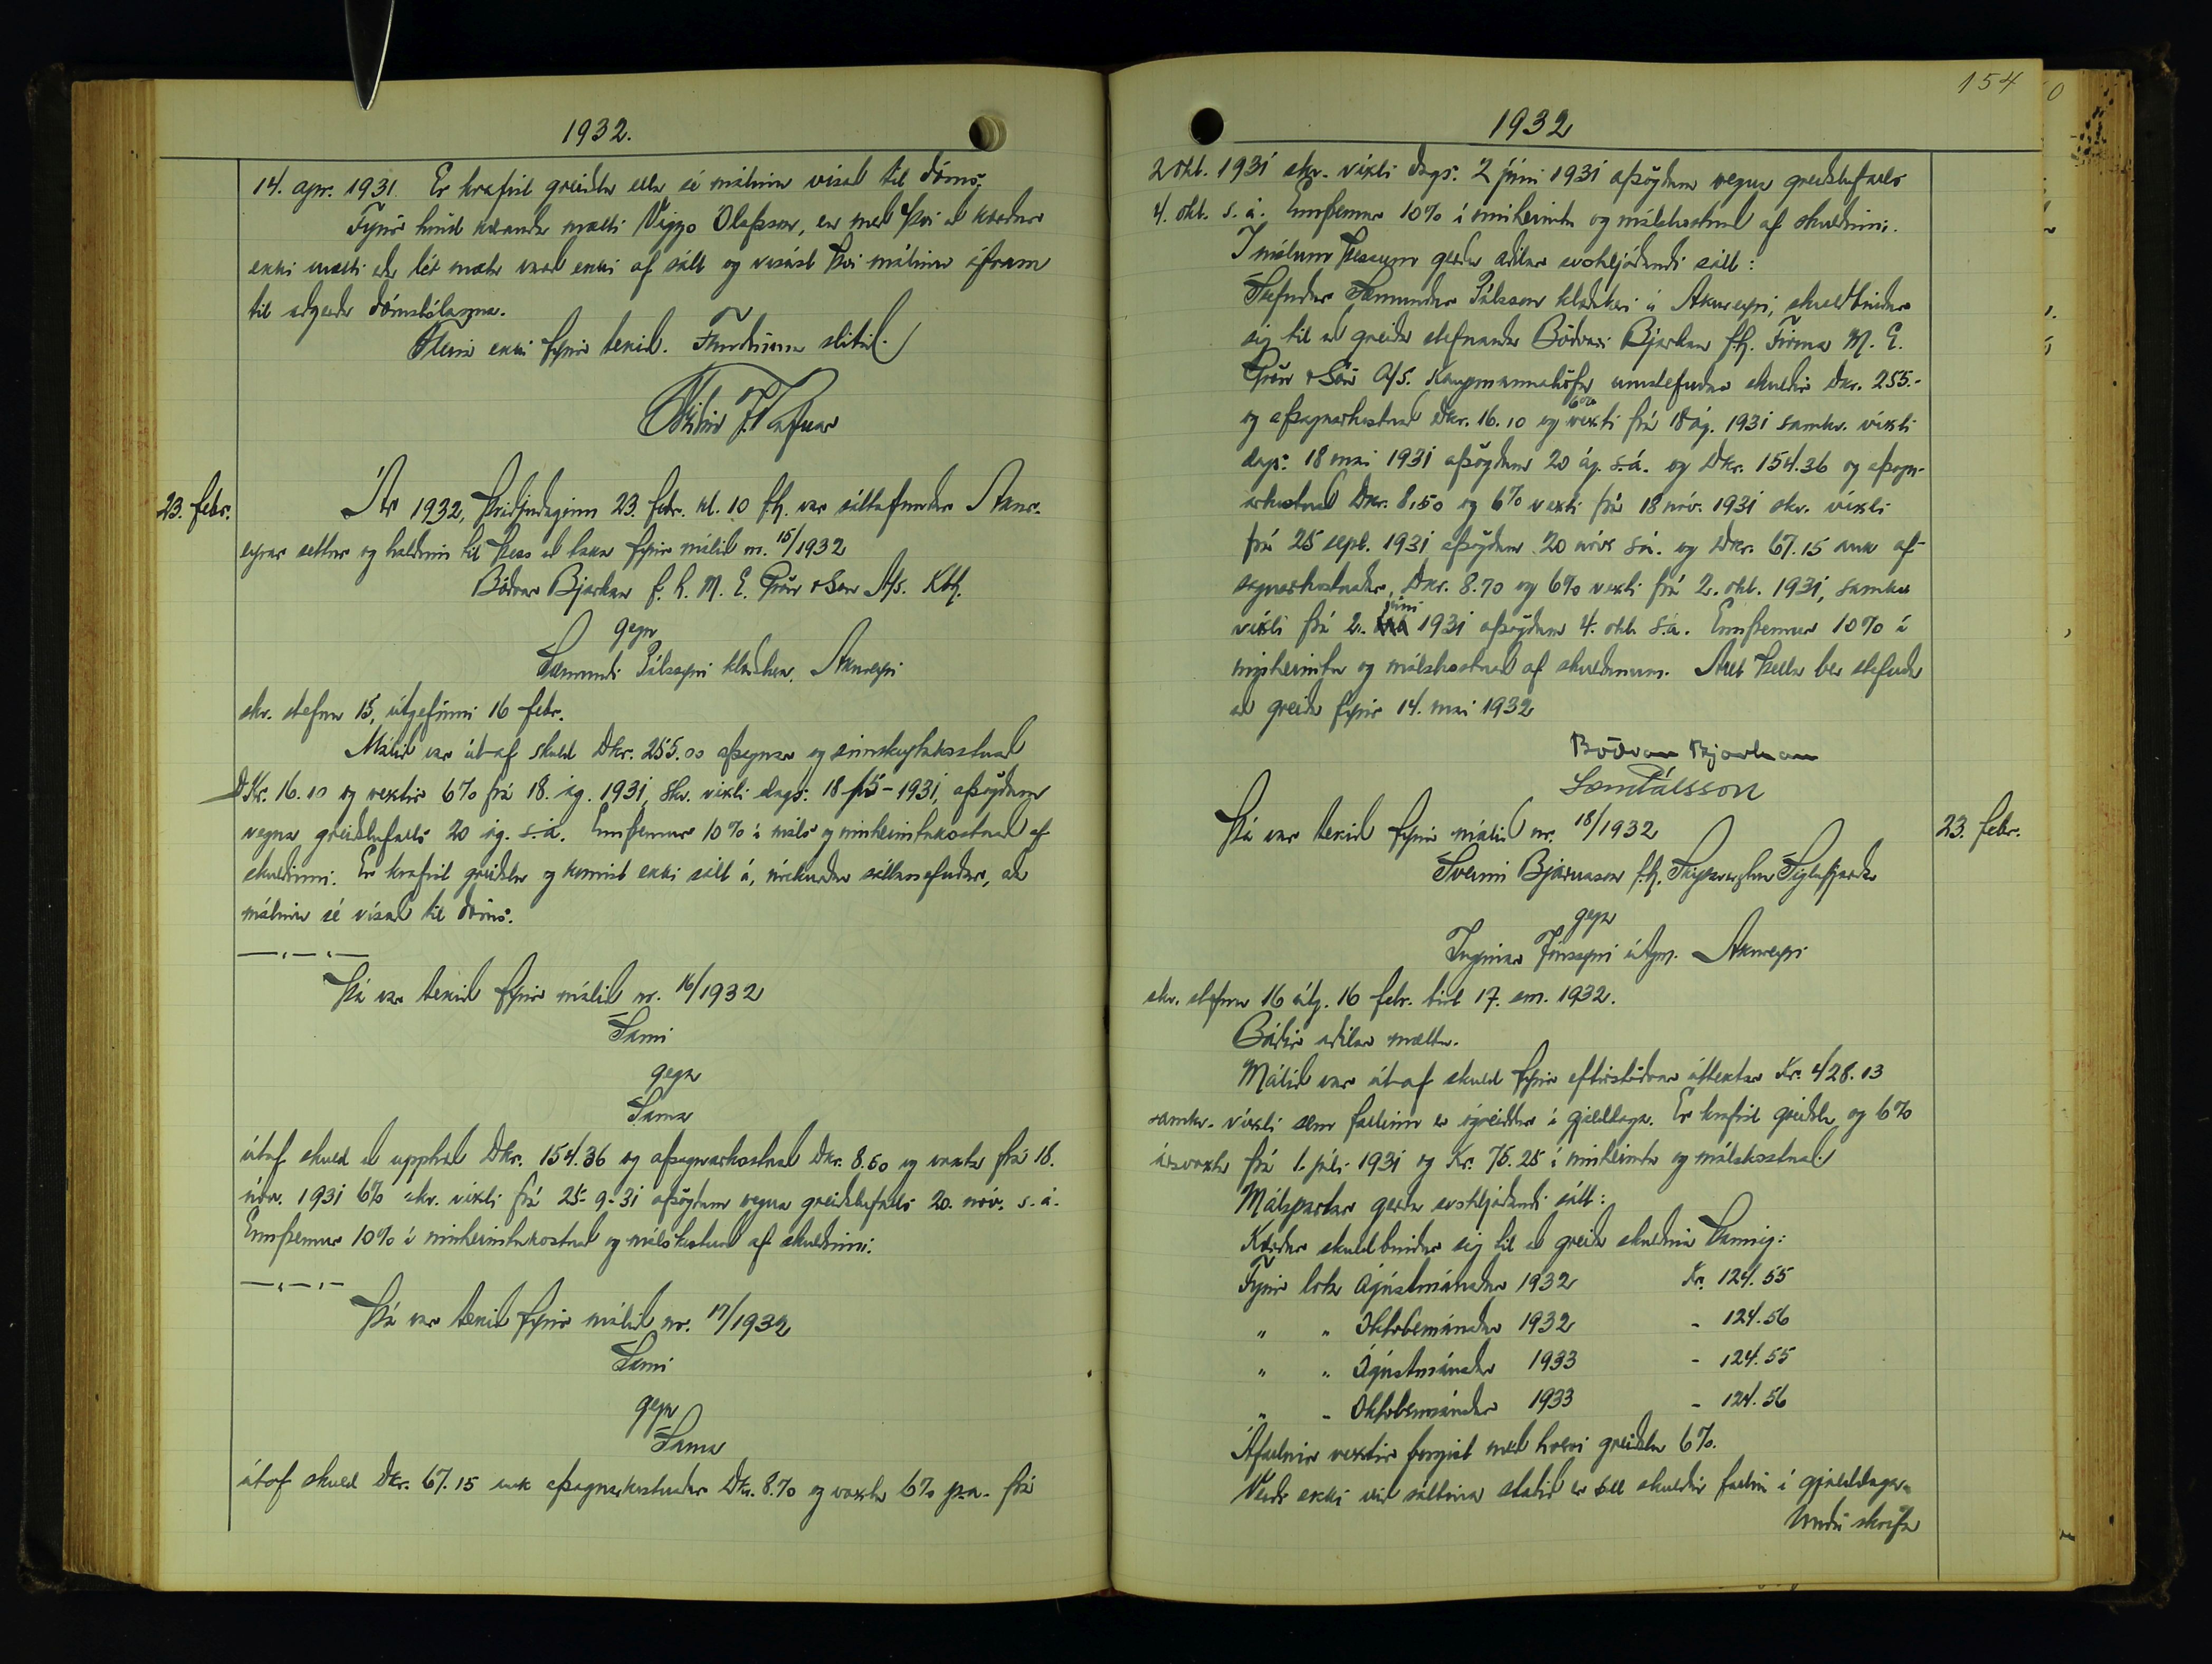 1932.
14. apr. 1931. Er krafist greiðslu ella sé málinu vísað til dóms.
Fyrir hönd kæranda mætti Viggo Ólafsson, en með því að kærður
ekki mætti eða lét mæta varð ekki af sátt og vísast því málinu áfram
til aðgerða dómstólanna.
Fleira ekki fyrir tekið. Fundinum slitið.
23. febr.
Ár 1932, þriðjudaginn 23. febr. kl. 10 f.h. var sáttafundur Akur-
eyrar settur og haldinn til þess að taka fyrir málið nr. 15/1932
Böðvar Bjarkan f. h. M. E. Grön & Sön A/S. Kbh.
gegn
Sæmundi Pálssyni klæðskera, Akureyri
skv. stefnu 15, útgefinni 16 febr.
Málið var út af skuld Dkr. 255.00 afsagnar og
DKr. 16.10 og vextir 6% frá 18. ág. 1931, skv. víxli dags. 18/5-1931, afsögðum
vegna greiðslufalls 20 ág. s.á. Ennfremur 10% í máls og innheimtukostnað af
skuldinni. Er krafist greiðslu og komist ekki sátt á, úrskurðar sáttanefndar, að
málinu sé vísað til dóms.
Þá var tekið fyrir málið nr. 16/1932
Sami
gegn
Sama
útaf skuld að upphæð Dkr. 154.36 og afsagnarkostnað Dkr. 8.50 og vaxta frá 18.
nóv. 1931 6% skv. víxli frá 25-9-31 afsögðum vegna greiðslufalls 20. nóv. s. á.
Ennfremur 10% í innheimtukostnað og málskostnað af skuldinni.
Þá var tekið fyrir málið nr. 17/1932
Sami
gegn
Sama
útaf skuld Dkr. 67.15 auk afsagnarkostnaðar Dkr. 8.70 og vaxta 6% p.a. frá
154
1932
2 okt. 1931 skv. víxli dags. 2 júni 1931 afsögðum vegna greiðslufalls
4. okt. s. á. Ennfremur 10% í innheimtu og málskostnað af skuldinni.
Í málum þessum gerðu aðilar svohljóðandi sátt:
Stefndur Sæmundur Pálsson klæðskeri á Akureyri, skuldbindur
sig til að greiða stefnanda Böðvari Bjarkan f.h. Firma M. E.
Grön & Sön A/S. Kaupmannahöfn umstefndar skuldir Dkr. 255.-
og afsagnarkostnað Dkr. 16.10 og 6% vexti frá 18 ág. 1931 samkv. víxli
dags. 18 mai 1931 afsögðum 20 ág. s.á. og Dkr. 154.36 og afsagn-
arkostnað Dkr. 8.50 og 6% vexti frá 18 nóv. 1931 skv. víxli
frá 25 sept. 1931 afsögðum 20 nóv. s.á. og Dkr. 67.15 auk af-
sagnarkostnaðar, Dkr. 8.70 og 6% vexti frá 2. okt. 1931, samkv.
víxli frá 2. júni 1931 afsögðum 4. okt. s.á. Ennfremur 10% í
innheimtu og málskostnað af skuldunum. Allt þetta ber stefnda
að greiða fyrir 14. mai 1932
Böðvar Bjarkan
Sæm Pálsson
23. febr.
Þá var tekið fyrir málið nr. 18/1932
Sveinn Bjarnason f.h. Siglufjarðar
gegn
Ingimar Jónssyni útgm. Akureyri
skv. stefnu 16 útg. 16 febr. birt 17. sm. 1932.
Báðir aðilar mættu.
Málið var út af skuld fyrir eftirstöðvar úttektar Kr. 428.13
samkv. víxli sem fallinn er ógreiddur í gjalddaga. Er krafist greiðslu og 6%
ársvaxta frá 1. júlí 1931 og Kr. 75.25 í innheimtu og málskostnað.
Málspartar gerðu svohljóðandi sátt:
Kærður skuldbindur sig til að greiða skuldina þannig:
Fyrir lok Ágústmánaðar 1932 Kr. 124.55
" " Októbermánaðar 1932 - 124.56
" " Ágústmánaðar 1933 - 124.55
" - Októbermánaðar 1933 - 124.56
Áfallnir vextir borgist með hverri greiðslu 6%.
Verði ekki við sáttina staðið er öll skuldin fallin í gjalddaga.
Undir skrifa